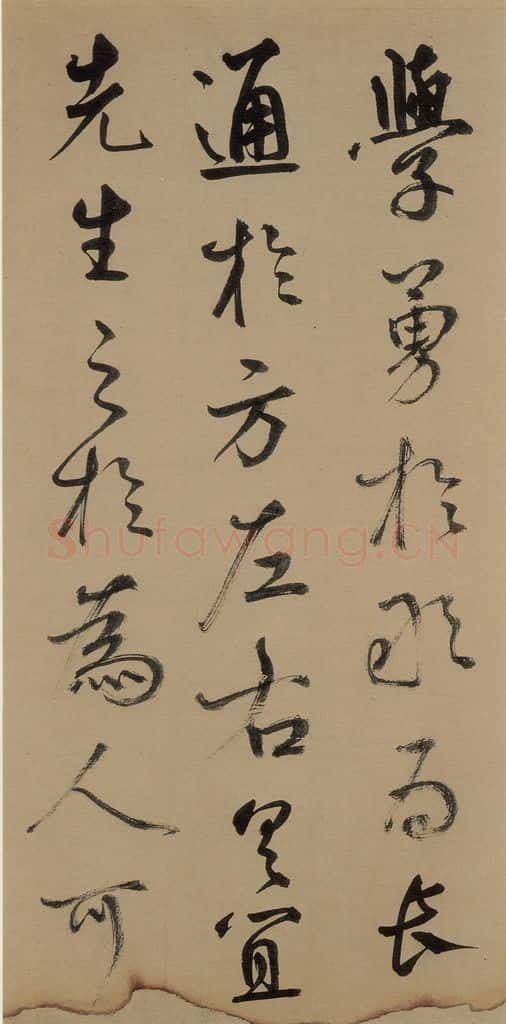 學勇於敢而長
通於方左右具宜
先生之於為人可
Shufawang.CN